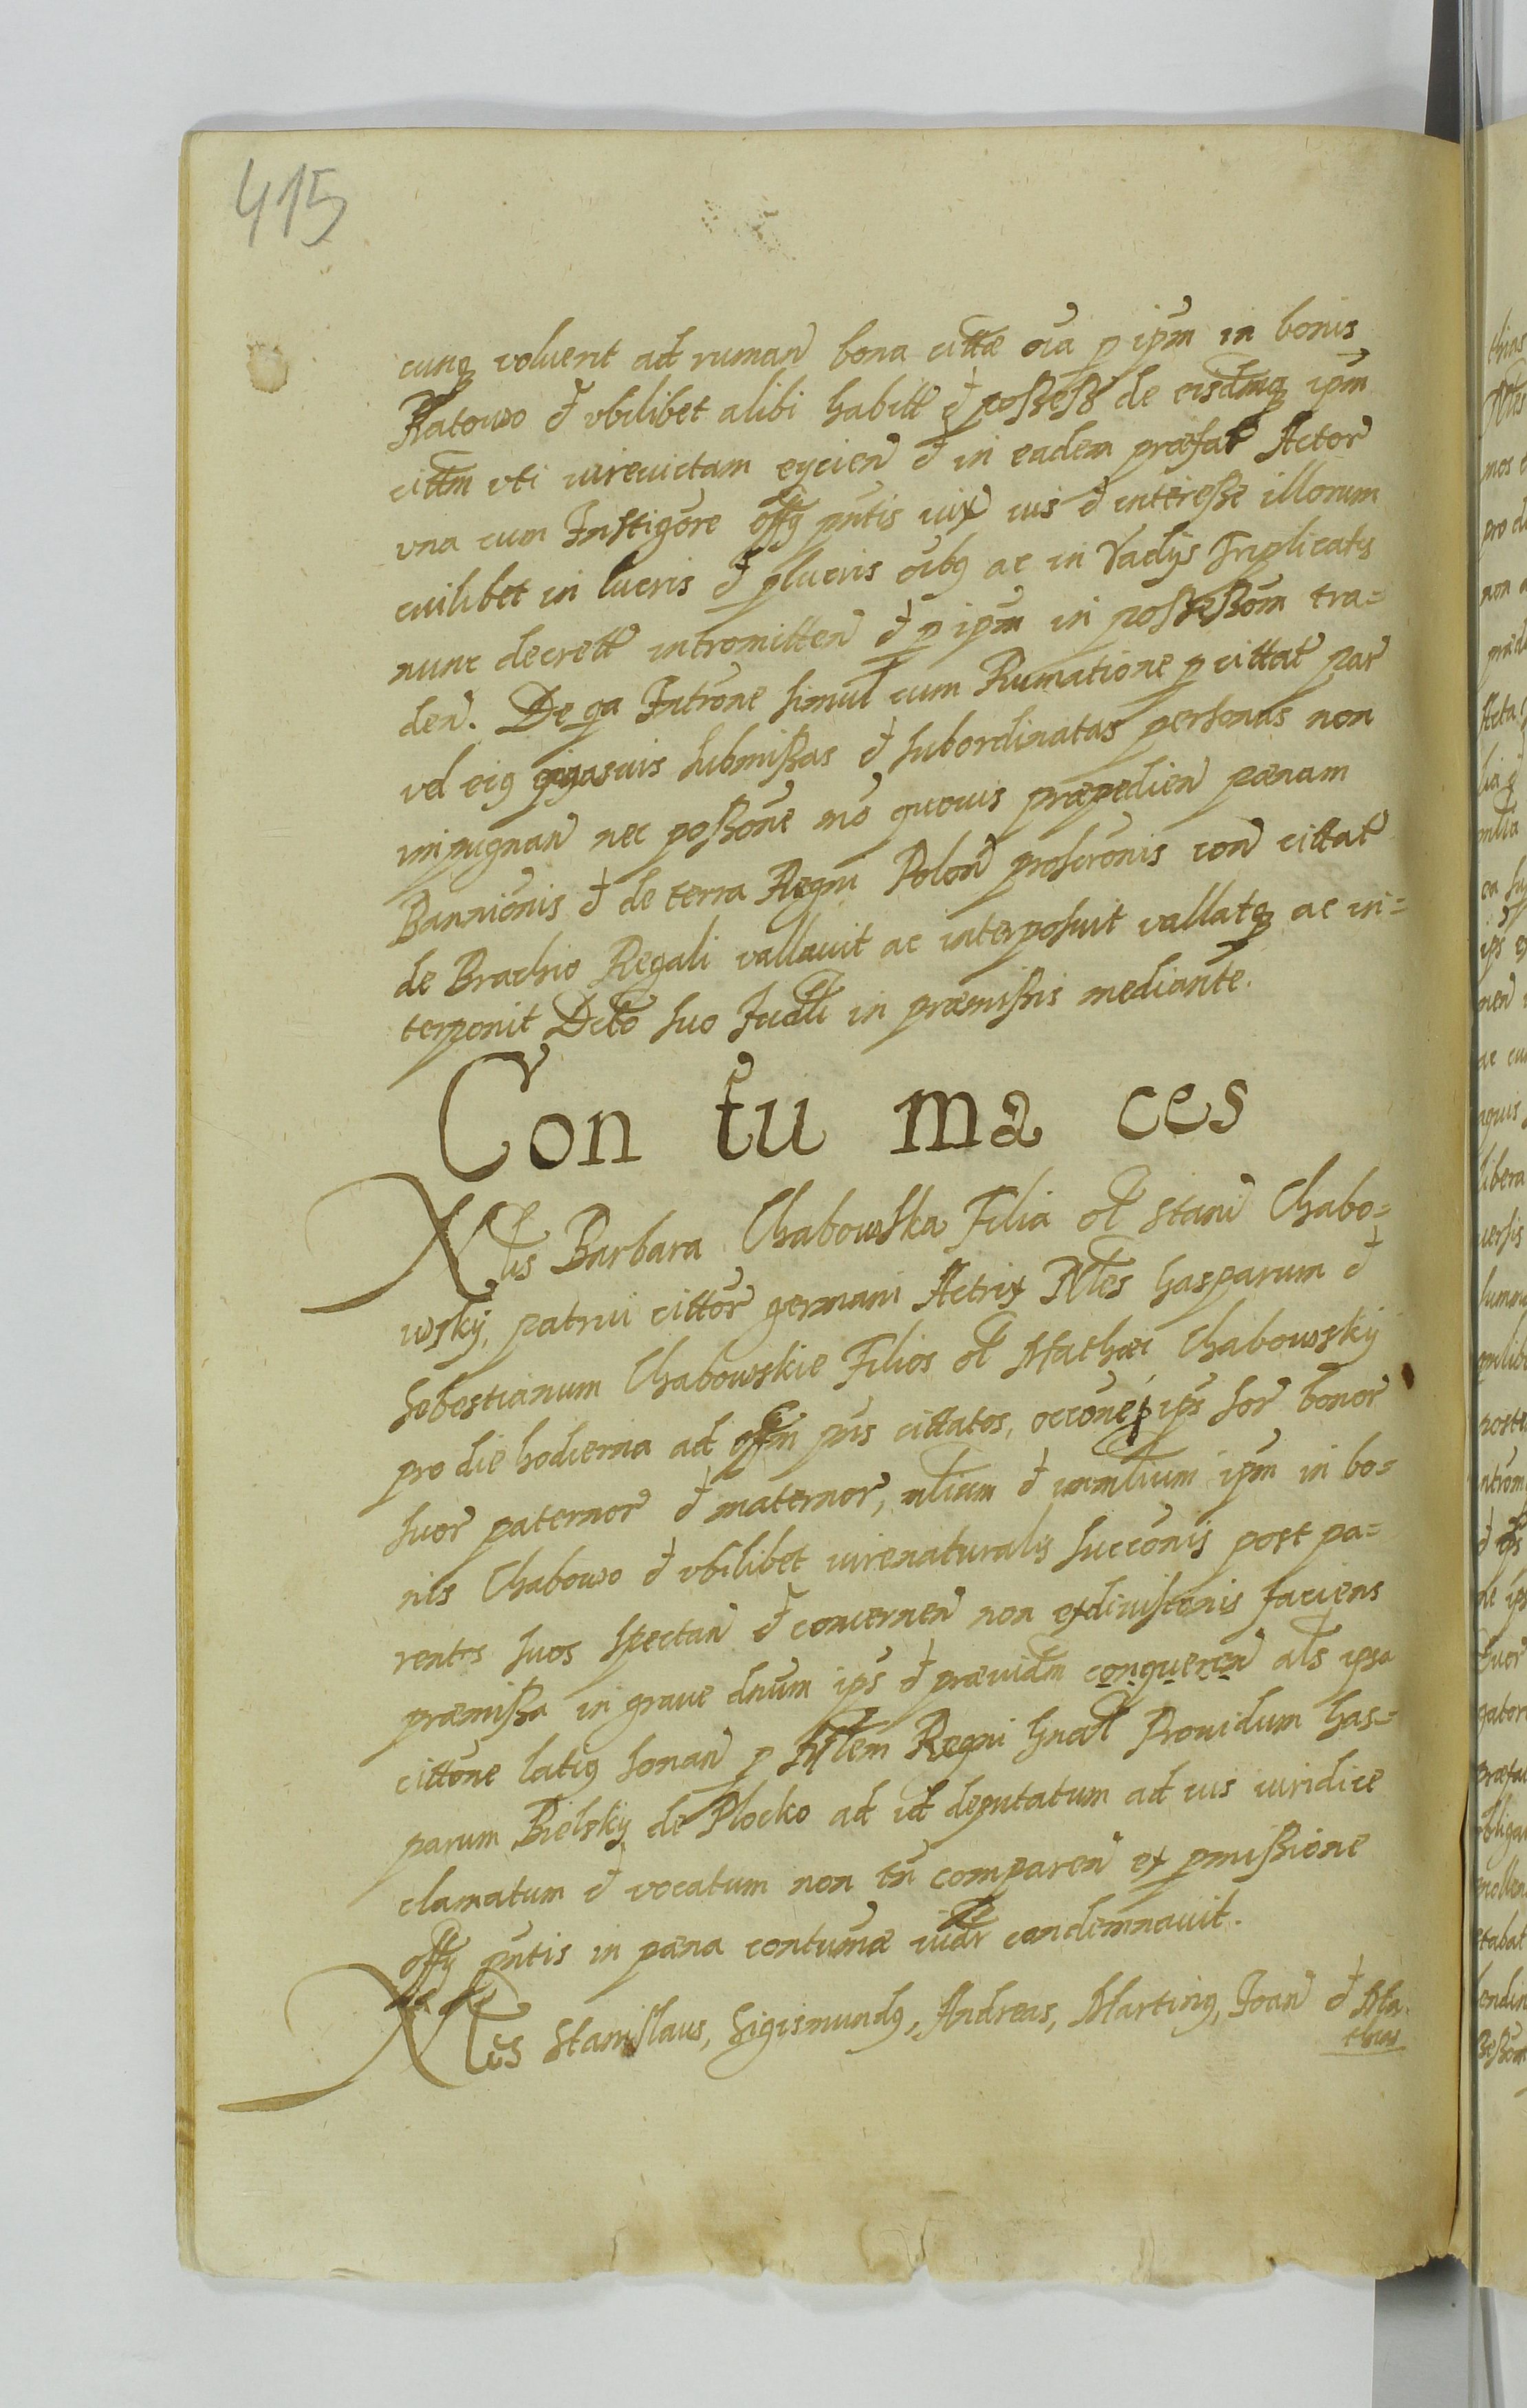 415
cunq voluerit ad ruman bona cittæ oia p ipm in bonis
Ratowo et ubilibet alibi habitt et possess de eisdmq ipm
cittm uti iurevictam eycien et in eadem præfat Actor
una cum Instigore offy pntis iux ius et interesse illorum
cuilibet in lucris et plucris oibq ac in Vadys Triplicatis
nunc decrett intromitten et p ipm in possessom tra=
den. De qa Introne simul cum Rumatione p cittat par
vel eiq submissas et subordinatas personas non
impugnan nec possone mo quovis præpedien pænam
Bannionis et de terra Regni Polon proscronis con cittat
de Brachio Regali vallavit ac interposuit vallatq ac in=
terponit Dcto suo Judli in præmissis mediante.
Con tu ma ces
Nlis Barbara Chabowska Filia ol Stani Chabo=
wsky, patrui cittor germani Actrix Nles hasparum et
Sebestianum Chabowskie Filios ol Mathæi Chabowsky
pro die hodierna ad offm pns cittatos, occone ips sor bonor
suor paternor et maternor, mlium et immlium ipm in bo=
nis Chabowo et ubilibet iurenaturalis succonis post pa=
rentes suos spectan et concernen non exdivisionis faciens
præmissa in grave dnum ips et præiudm conqueren als ipsa
cittone latiq sonan p Mlem Regni Gnal Providum has=
parum Bielsky de Plocko ad id deputatum ad ius iuridice
clamatum et vocatum non tn comparen ex pmissione
offy pntis in pæna contumæ condemnavit.
Nles Stanislaus, Sigismundq, Andreas, Martinq, Joan et Ma.
thias